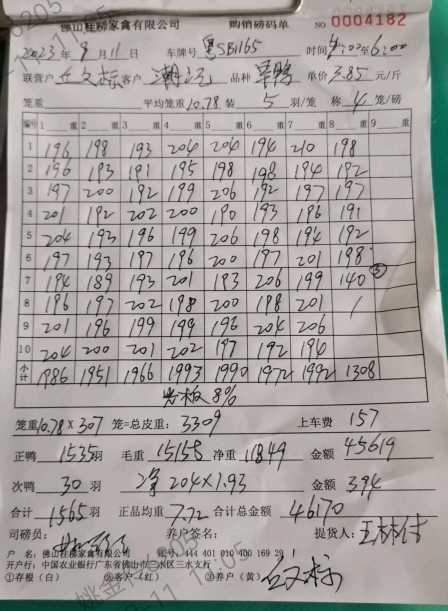 佛山桂柳家禽有限公司 购销磅码单 NO 0004182
2023年9月11日 车牌号 粤SB1165 时间
联营户 客户 品种 单价 3.85 元/斤
笼重 平均笼重 10.78 装 5 羽/笼 称 4 笼/磅
编号 1 重 2 重 3 重 4 重 5 重 6 重 7 重 8 重 9 重
1 196 198 193 204 204 194 210 198
2 196 193 191 195 198 198 194 192
3 197 200 192 199 206 192 197 197
4 201 192 202 200 190 193 196 191
5 204 193 196 199 206 198 194 192
6 197 193 197 196 200 197 201 198
7 194 189 193 201 193 206 199 140 ③
8 196 197 202 198 200 198 201 /
9 201 196 199 199 196 204 206
10 204 200 201 202 197 192 194
小计 1986 1951 1966 1993 1990 1972 1992 1308
8%
笼重 10.78 × 307 笼=总皮重: 3309 上车费 157
正鸭 1535 羽 毛重 15158 净重 11849 金额 45619
次鸭 30 羽 净 204×1.93 金额 394
合计 1565 羽 正品均重 7.72 合计总金额 46170
司磅员: 养户签名: 提货人:
户 名: 佛山桂柳家禽有限公司 账号: 444 401 010 400 169 291
开户行: 中国农业银行广东省佛山市三水区三水支行
①存根(白) ②客户(红) ③养户(黄)